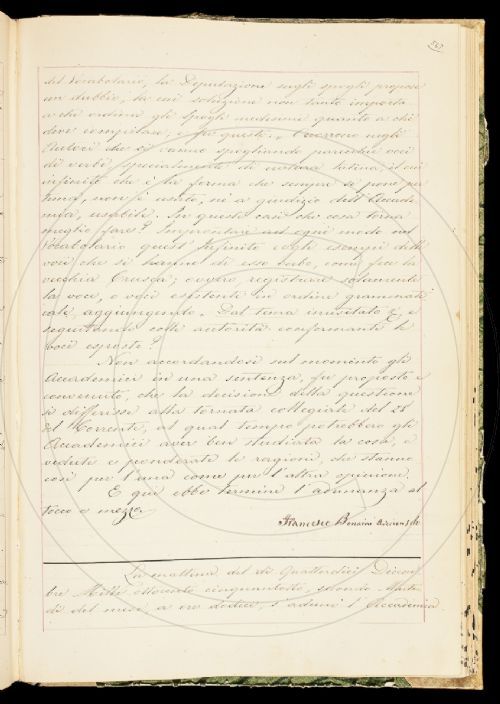 del Vocabolario, la Deputazione sugli spogli propose
un dubbio; la cui soluzione non tanto importa
a chi ordina gli spogli medesimi quanto a chi
deve compilare; e fu questo. Occorrono negli
Autori che si vanno spogliando parecchie voci
di verbi specialmente di natura latina, il cui
infinito che è la forma che sempre si pone per
tema, non è usato, nè a giudizio dell'Accade-
mia, usabile. In questo caso che cosa torna
meglio fare? Impostare ad ogni modo nel
Vocabolario quest'Infinito cogli esempi delle
voci che si hanno di esso verbo, come fece la
vecchia Crusca; ovvero registrare solamente
la voce, o voci esistente in ordine grammati
cale, aggiungendo. Dal tema inusitato &, e
seguitando colle autorità confermante le
voci esposte?
Non accordandosi sul momento gli
Accademici in una sentenza, fu proposto e
convenuto, che la decisione della questione
si differisse alla tornata collegiale del 28
del Corrente, al qual tempo potrebbero gli
Accademici aver ben studiata la cosa, e
vedute e ponderate le ragioni, che stanno
così per l'una come per l'altra opinione.
E qui ebbe termine l'adunanza al
tocco e mezzo.
Francesco Bonaini
La mattina del dì Quattordici Dicem
bre Mille ottocento cinquantotto, secondo Marte
dì del mese, a ore dodici, s'adunò l'Accademia